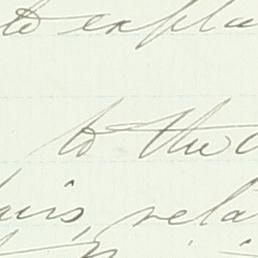 to expla
to the
airs, rela